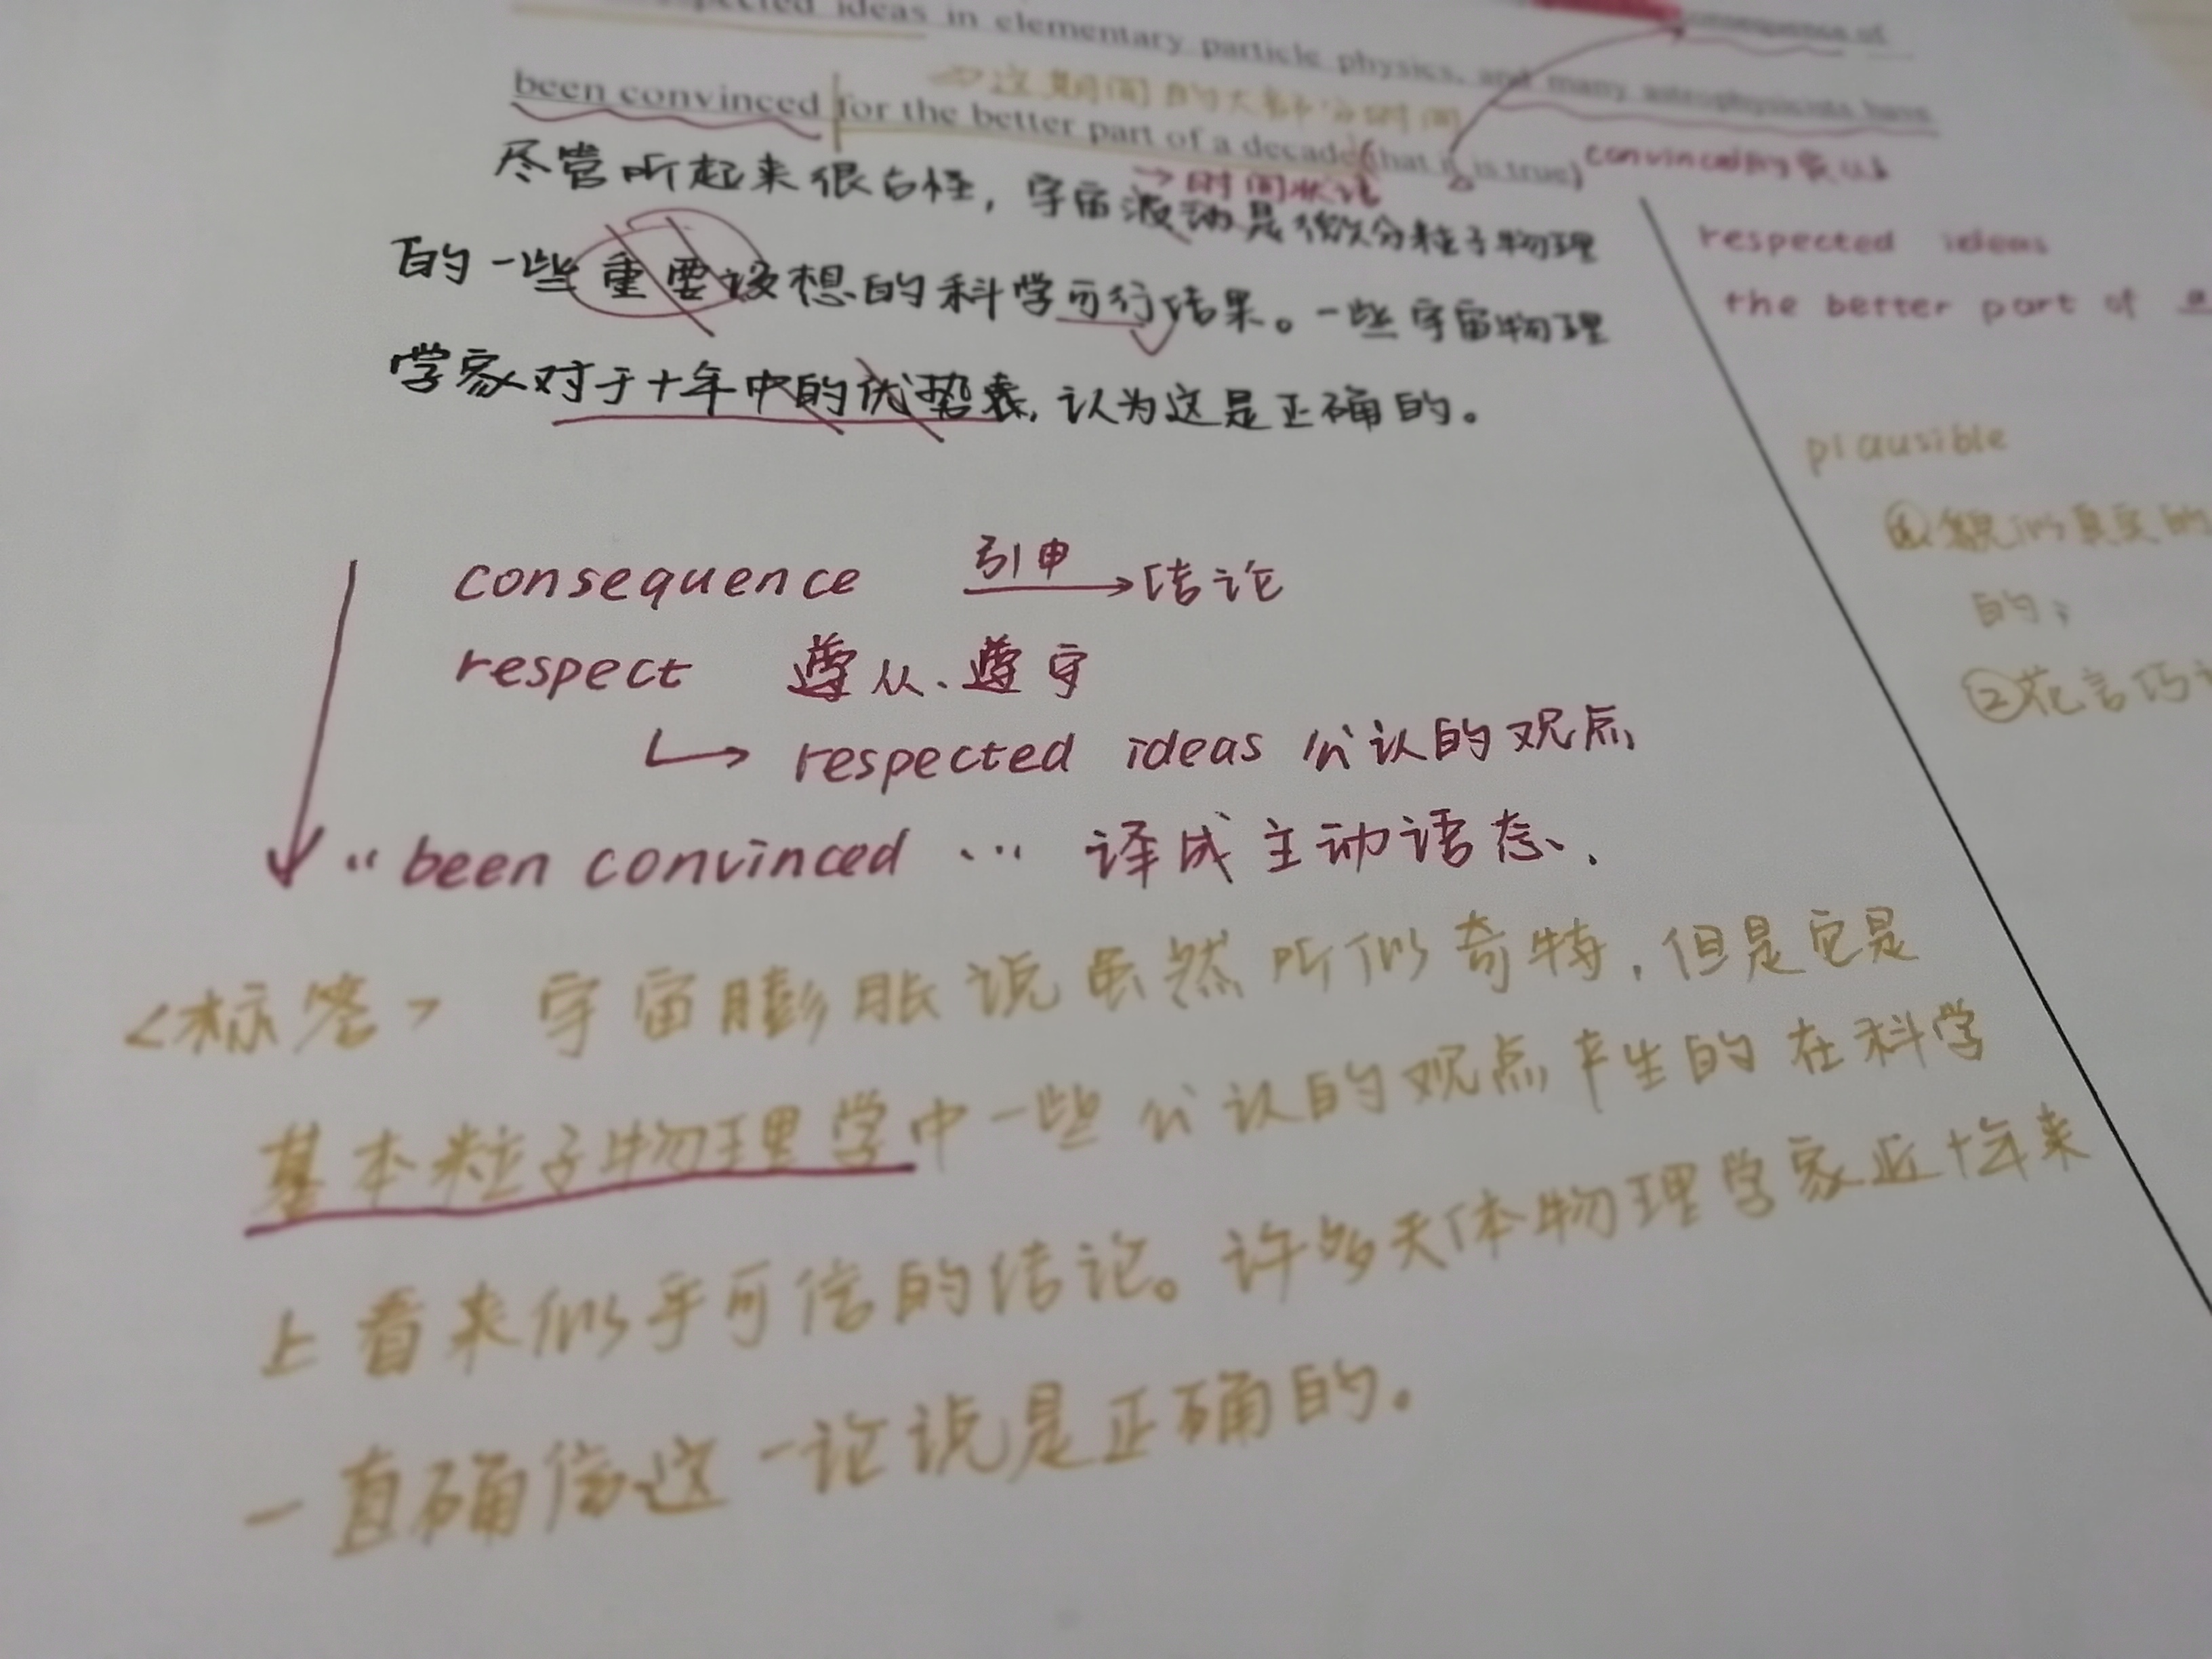 ideas in elementary particle physics, and many astrophysicists have
这期间的大部分时间
been convinced for the better part of a decade (that it is true)
时间状语
尽管听起来很古怪，宇宙波动是微分粒子物理
的一些重要设想的科学可行结果。一些宇宙物理
学家对于十年中的优势裹，认为这是正确的。
respected ideas
the better part of a
plausible
①貌似真实的
的；
②花言巧
consequence 引申 结论
respect 遵从、遵守
respected ideas 公认的观点
“been convinced … 译成主动语态、
<标答> 宇宙膨胀说虽然听似奇特，但是它是
基本粒子物理学中一些公认的观点产生的在科学
上看来似乎可信的结论。许多天体物理学家近十年来
一直确信这一论说是正确的。